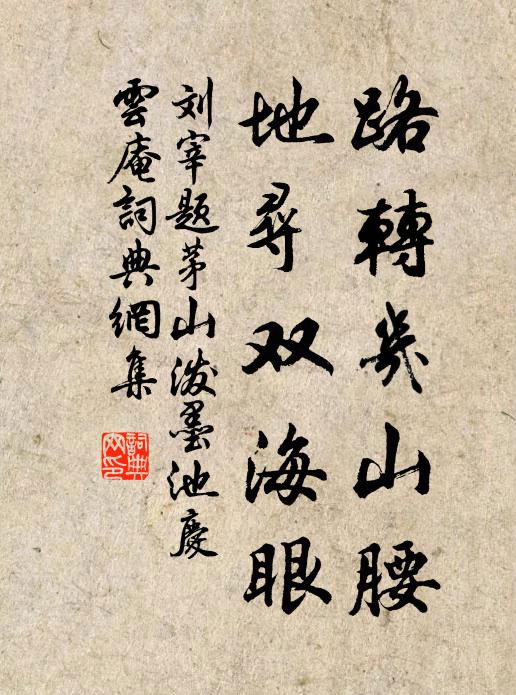 路轉幾山腰
地尋双海眼
刘宰题茅山泼墨池慶
雲庵詞典網集
詞典網印